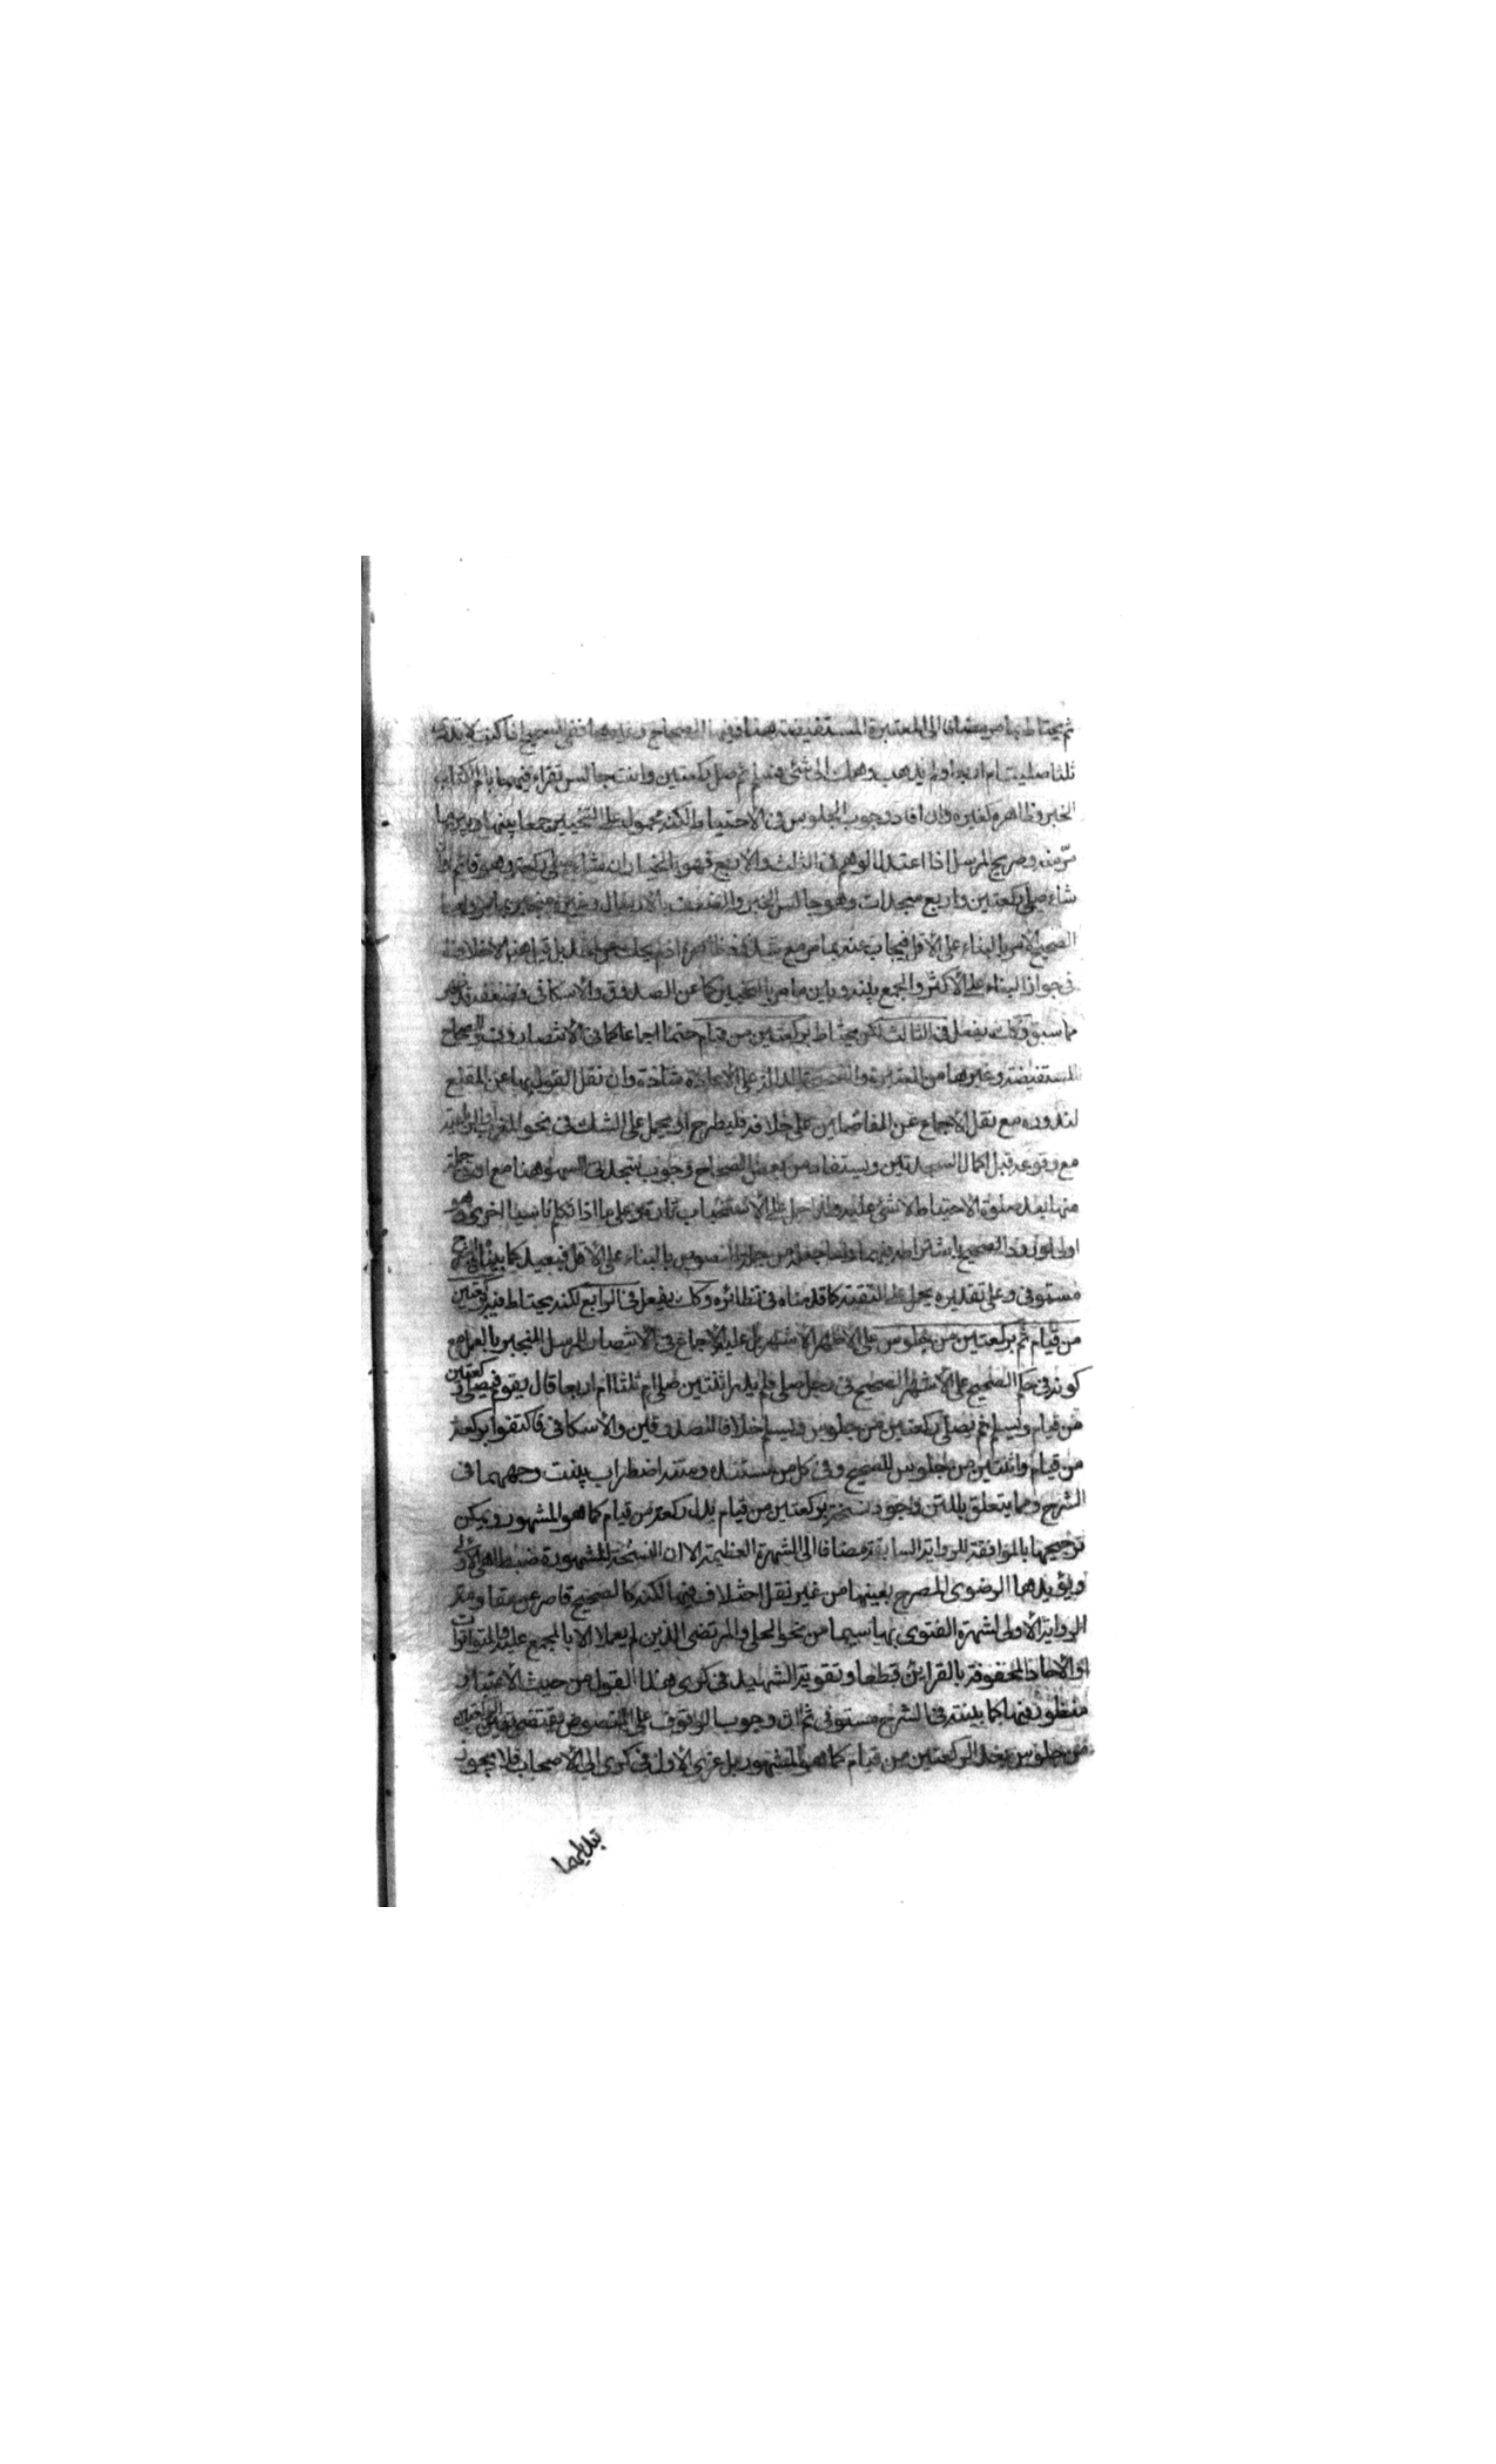 ثم يحتاط بما مر مضافا الى المعتبرة المستفيضة هنا وفيها الصحاح وغيرها ففي الصحيح اذا كنت لا تدري
ثلثا صليت ام اربعا ولم يذهب وهمك الى شئ فسلم ثم صل ركعتين وانت جالس تقراء فيهما بام الكتاب
الخبر وظاهره كغيره وان افاد وجوب الجلوس في الاحتياط لكنه محمول على التخيير جمعا بينها وبين ما
مر منه وصريح المرسل اذا اعتدل الوهم في الثلث والاربع فهو بالخيار ان شاء صلى ركعة وهو قائم وان
شاء صلى ركعتين واربع سجدات وهو جالس الخبر والضعف بالارسال وغيره منجبر بما مر واما
الصحيح الآمر بالبناء على الاقل فيجاب عنه بما مر مع بل قيل هنا لا خلاف
في جواز البناء على الاكثر والجمع بينه وبين ما مر بالتخيير كما عن الصدوق والاسكافي وضعفه قد ظهر
مما سبق وكك يفعل في الثالث لكن يحتاط بركعتين من قيام حتما اجماعا كما في الانتصار وفي الصحاح
المستفيضة وغيرها من المعتبرة والصحيحة الدالة على الاعادة شاذة وان نقل القول بها عن المقنع
لندوره مع نقل الاجماع عن الفاضلين على خلافه فليطرح او يحمل على الشك في نحو المغرب
مع وقوعه قبل اكمال السجدتين ويستفاد من بعض الصحاح وجوب سجدتي السهو هنا مع ان في جملة
منها بعد صلوة الاحتياط لا شئ عليه ولذا حمل على الاستحباب تارة وعلى ما اذا تكلم ناسيا اخرى وهو
اولى لورود الصحيح باشتراطه فيهما واما من النصوص بالبناء على الاقل فبعيد كما بيناه في الشرح
مستوفى وعلى تقديره يحمل على التقية كما قدمناه في نظائره وكك يفعل في الرابع لكنه يحتاط فيه بركعتين
من قيام ثم بركعتين من جلوس على الاظهر الاشهر بل عليه الاجماع في الانتصار للمرسل المنجبر بالعمل مع
كونه في حكم الصحيح على الاشهر الصحيح في رجل صلى فلم يدر اثنتين صلى ام ثلثا ام اربعا قال يقوم فيصلي ركعتين
من قيام ويسلم ثم يصلي ركعتين من جلوس ويسلم خلافا للصدوقين والاسكافي فاكتفوا بركعة
من قيام واثنتين من جلوس للصحيح وفي كل من سنده ومتنه اضطراب بينت وجههما في
الشرح ومما يتعلق بالمتن وجود نسخة بركعتين من قيام بدل ركعة من قيام كما هو المشهور ويمكن
ترجيحها بالموافقة للرواية السابقة مضافا الى الشهرة العظيمة الا ان النسخة المشهورة ضبطا هي الاولى
ويؤيدها الرضوي المصرح بعينها من غير نقل اختلاف فيها لكنه كالصحيح قاصر عن مقاومة
الرواية الاولى لشهرة الفتوى بها سيما من نحو الحلي والمرتضى الذين لم يعملا الا بالمجمع عليه والمتواترات
او الآحاد المحفوفة بالقراين قطعا وتقوية الشهيد في كرى هذا القول من حيث الاعتبار
منظور فيها كما بينته في الشرح مستوفى ثم ان وجوب الوقوف على النصوص يقتضي تعين الركعتين
من جلوس بعد الركعتين من قيام كما هو المشهور بل عزى الاول في كرى الى الاصحاب فلا يجوز
تبديلهما